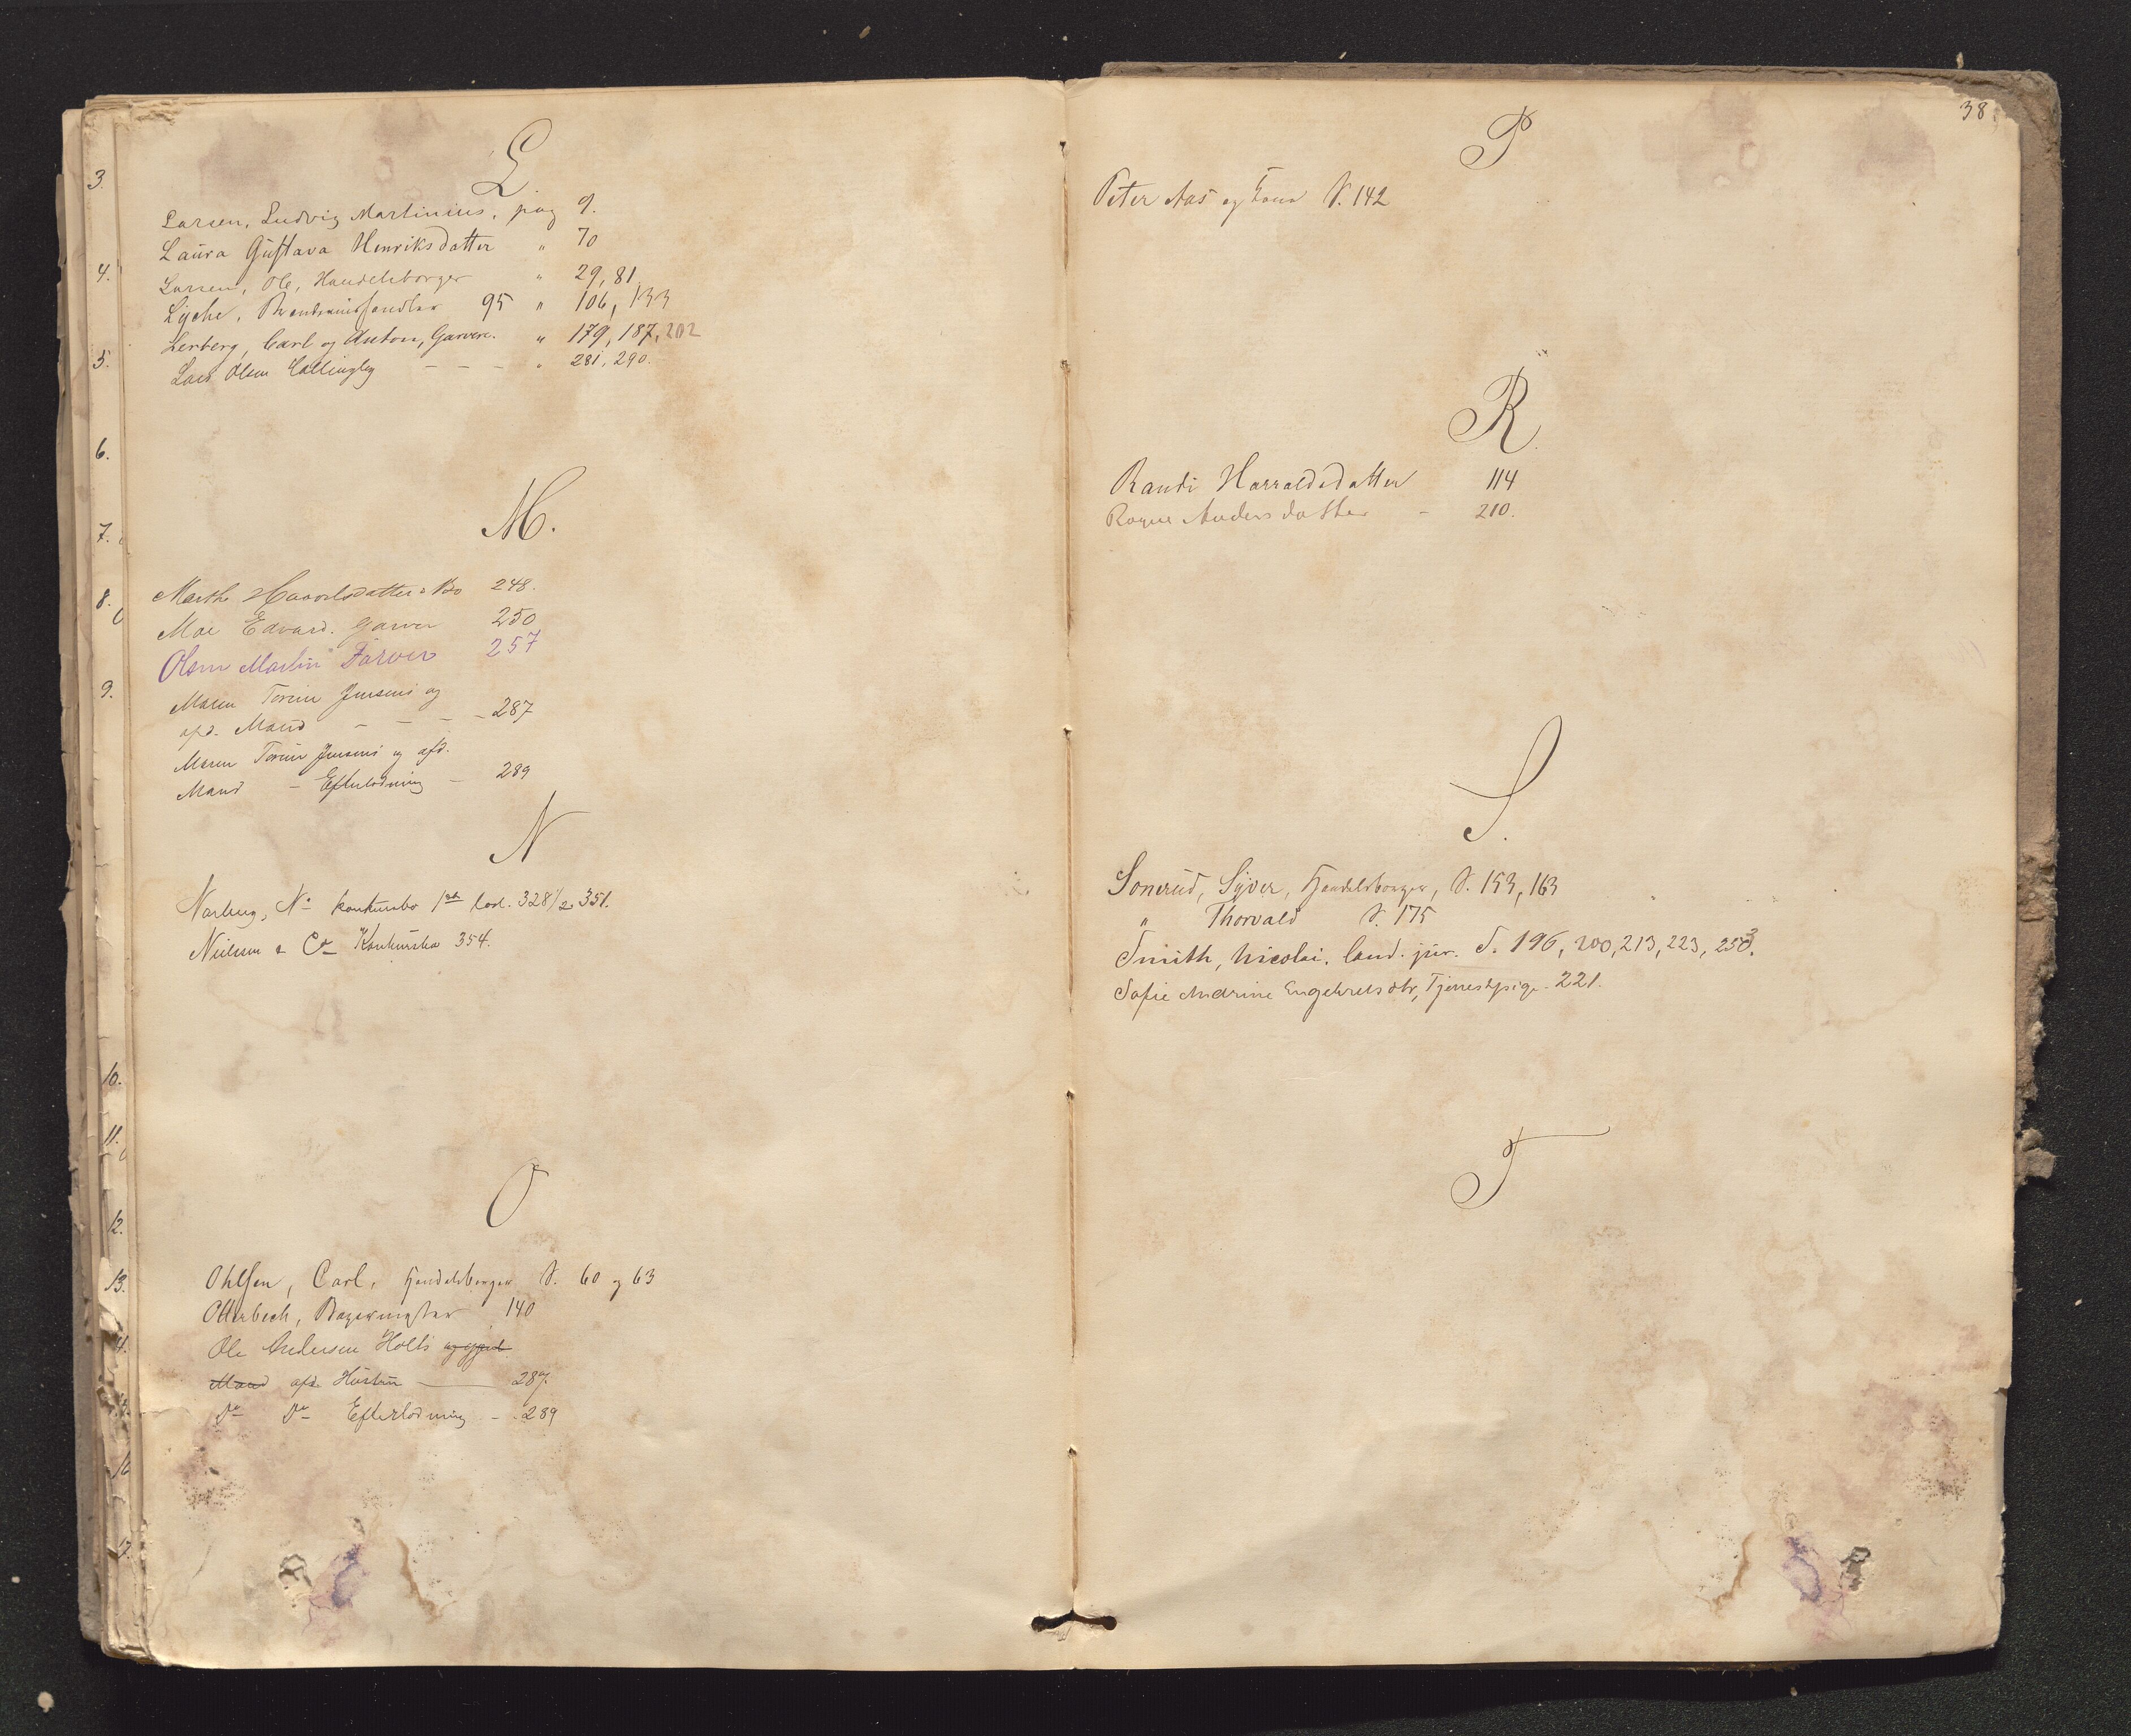 L
Larsen, Ludvig Martinius, pag 9.
Laura Gustava Henriksdatter " 70
Larsen, Ole, Handelsborger " 29, 81
Lyche, 95 " 106, 133
Lerberg, Carl og Anton, Garvere. " 179, 187, 202
Lars Olsen - - - " 281, 290.
M.
Marthe Bo 248.
Moe Edvard. Garver 250
Olsen Martin Farver 257
Maren Jensens og
afd. Mand - - - - 287
Maren Jensens og afd.
Mand - Efterlodning - 289
N
N. konkursbo 1ste 328 1/2. 351.
Nielsen & Co Konkursbo 354.
O
Ohlsen, Carl, Handelsborger S. 60 og 63
Otterbech, Bagermester 140
Ole Andersen Holts og
Mand afd. Hustru — 287.
Do Do Efterlodning - 289
38.
P
Peter Aas og Kone S. 142
R.
Randi Harraldsdatter 114
Andersdatter - 210.
S.
Sonerud, Syver, Handelsborger, S. 153, 163
" Thorvald S. 175
Smith, Nicolai, Cand. jur. S. 196, 200, 213, 223, 253.
Sofie Andrine Engebretsdtr, Tjenestepige. 221.
T
3.
4.
5.
6.
7.
8.
9.
10.
11.
12.
13.